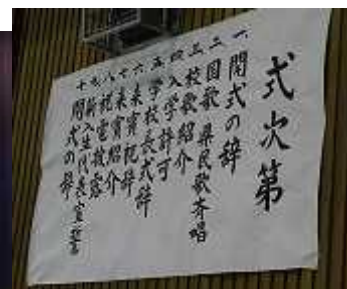 式次第
一 開式の辞
二 国歌 県民歌斉唱
三 校歌紹介
四 入学許可
五 学校長式辞
六 来賓祝辞
七 来賓紹介
八 祝電披露
九 新入生代表宣誓
十 閉式の辞